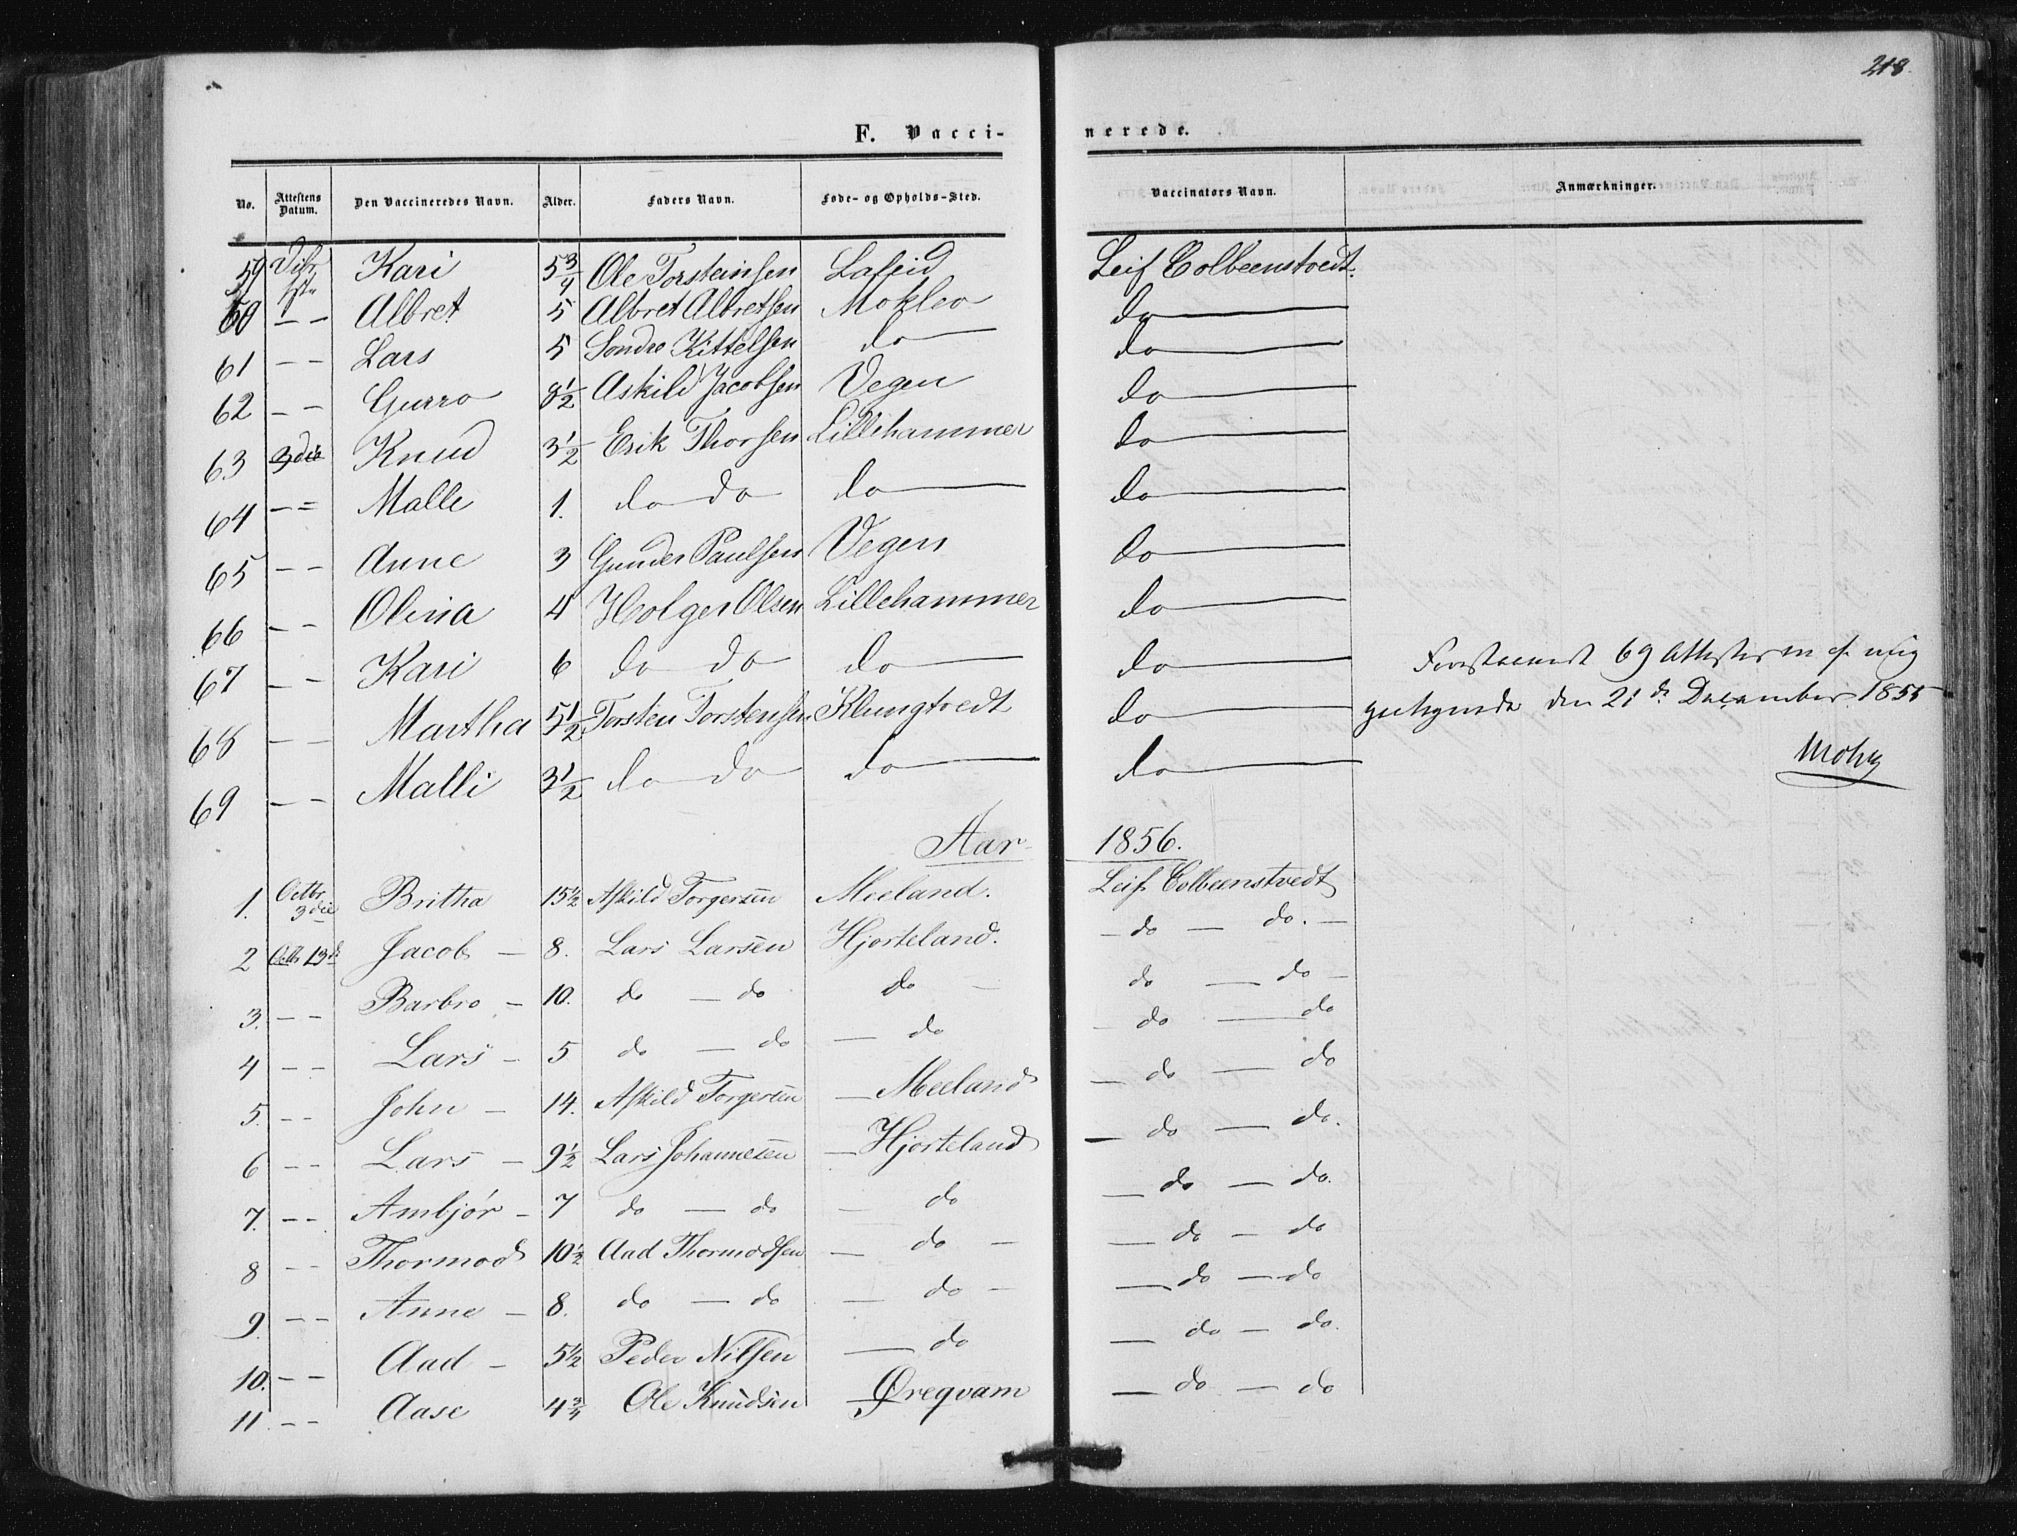 218.
F. Vaccinerede.
No. Attestens Datum. Den Vaccineredes Navn. Alder. Faders Navn. Føde- og Opholds-Sted. Vaccinators Navn. Anmærkninger.
59 Kari 5 3/4 Ole Torsteinsen Lafeid Leif Colbeenstvedt.
60 – – Albret 5 Albret Albretsen Moklev do
61 – – Lars 5 Sondre Kittelsen do do
62 – – Gurro 8 1/2 Askild Jacobsen Vegen do
63 3die Knud 3 1/2 Erik Thorsen Lillehammer do
64 – – Malle 1. do do do do
65 – – Anne 3 Gunder Paulsen Vegen do
66 – – Olina 4 Holger Olsen Lillehammer do
67 – – Kari 6 do do do do
68 – – Martha 5 1/2 Torsten Torstensen Klungtvedt do
69 – – Malli 3 1/2 do do do do
69 Attester
den 21de December 1855
Aar 1856.
1. Octbr 3die Britha 15 1/2 Askild Torgersen Meeland. Leif Colbeenstvedt
2 Octbr 13de Jacob – 8. Lars Larsen Hjorteland. – do – do. –
3. – – Barbro – 10. do – do do – do – do –
4 – – Lars – 5 do – do – do – do – do
5. – – John – 14. Askild Torgersen – Meeland – do – do
6 – – Lars – 9 1/2 Lars Johannesen – Hjorteland – do – do.
7. – – Ambjør – 7 do – do – do – do – do.
8 – – Thormod 10 1/2 Aad Thormodsen – do – – do – do
9. – – Anne – 8. do – do – do – – do – do
10. – – Aad – 5 1/2 Peder Nilsen – do – do – do.
11 – – Aase 4 3/4 Ole Knudsen – Øreqvam – do – do